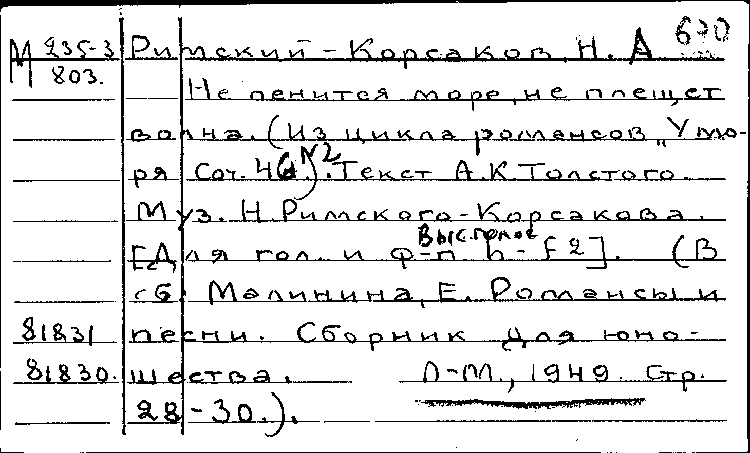 М 235-3 Римский-Корсаков, Н. А 670
803.
Не пенится море, не плещет
волна. (Из цикла романсов „У мо-
ря Соч. 46 №2). Текст А.К.Толстого.
Муз. Н.Римского-Корсакова.
Выс.голос
[Для гол. и ф-п h-f2]. (В
сб: Малинина, Е. Романсы и
81831 песни. Сборник для юно-
81830. шества. Л-М., 1949. Стр.
28-30.).